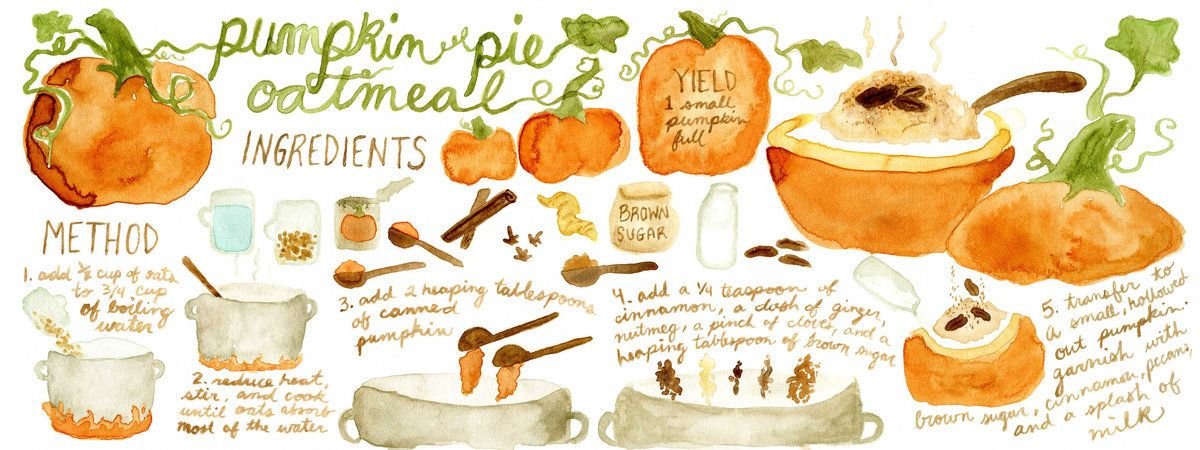 pumpkin pie
oatmeal
INGREDIENTS
YIELD
1 small
pumpkin
full
BROWN
SUGAR
METHOD
1. add ½ cup of oats
to 3/4 cup
of boiling
water
2. reduce heat,
stir, and cook
until oats absorb
most of the water
3. add 2 heaping tablespoons
of canned
pumpkin
4. add a ¼ teaspoon of
cinnamon, a dash of ginger,
nutmeg, a pinch of cloves, and a
heaping tablespoon of brown sugar
5. transfer to
a small, hollowed
out pumpkin.
garnish with
brown sugar, cinnamon, pecans,
and a splash of
milk